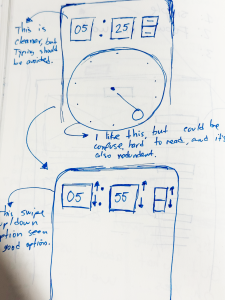 This is
cleaner, but
Typing should
be avoided.
05 : 25
I like this, but could be
confuse, hard to read, and it's
also redundant.
05 : 55
This swipe
up/down
option seem
good option.